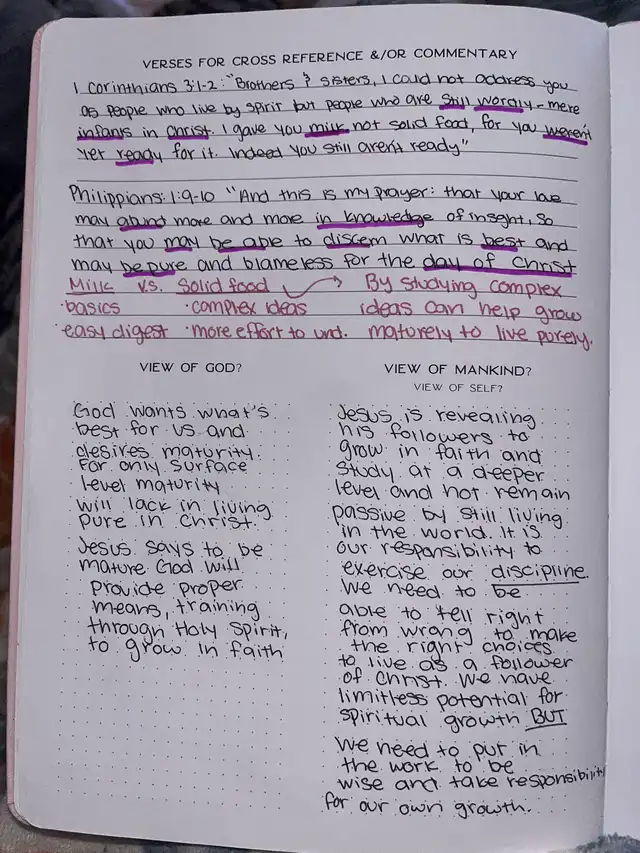 VERSES FOR CROSS REFERENCE &/OR COMMENTARY
1 Corinthians 3:1-2: "Brothers & sisters, I could not address you
as people who live by spirit but people who are still wordly - mere
infants in Christ. I gave you milk not solid food, for you weren't
yet ready for it. Indeed you still aren't ready"
Philippians: 1:9-10 "And this is my prayer: that your love
may abund more and more in knowledge of insght, so
that you may be able to discern what is best and
may be pure and blameless for the day of Christ
Milk v.s. Solid food → By studying complex
·basics ·complex ideas ideas can help grow
·easy digest ·more effort to und. maturely to live purely.
VIEW OF GOD?
God wants what's
best for us and
desires maturity.
For only surface
level maturity
will lack in living
pure in Christ.
Jesus says to be
mature God will
provide proper
means, training
through Holy Spirit,
to grow in faith
VIEW OF MANKIND?
VIEW OF SELF?
Jesus is revealing
his followers to
grow in faith and
study at a deeper
level and not remain
passive by still living
in the world. It is
our responsibility to
exercise our discipline.
We need to be
able to tell right
from wrong to make
the right choices
to live as a follower
of Christ. We have
limitless potential for
spiritual growth BUT
We need to put in
the work to be
wise and take responsibility
for our own growth.